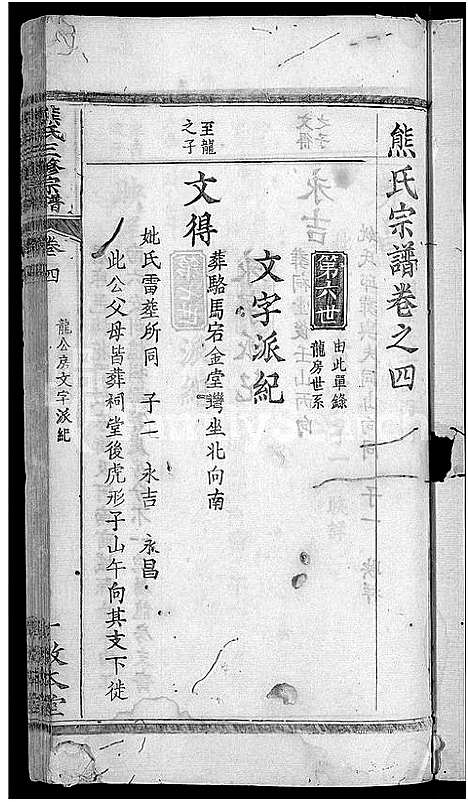 熊氏宗譜卷之四
第六世
由此單錄
龍房世系
文字派紀
至龍
之子
文得
葬駱馬宕金堂灣坐北向南
妣氏雷塟所同 子二 永吉 永昌
此公父母皆葬祠堂後虎形子山午向其支下徙
熊氏三修宗譜
卷四
龍公房文字派紀
一
大堂